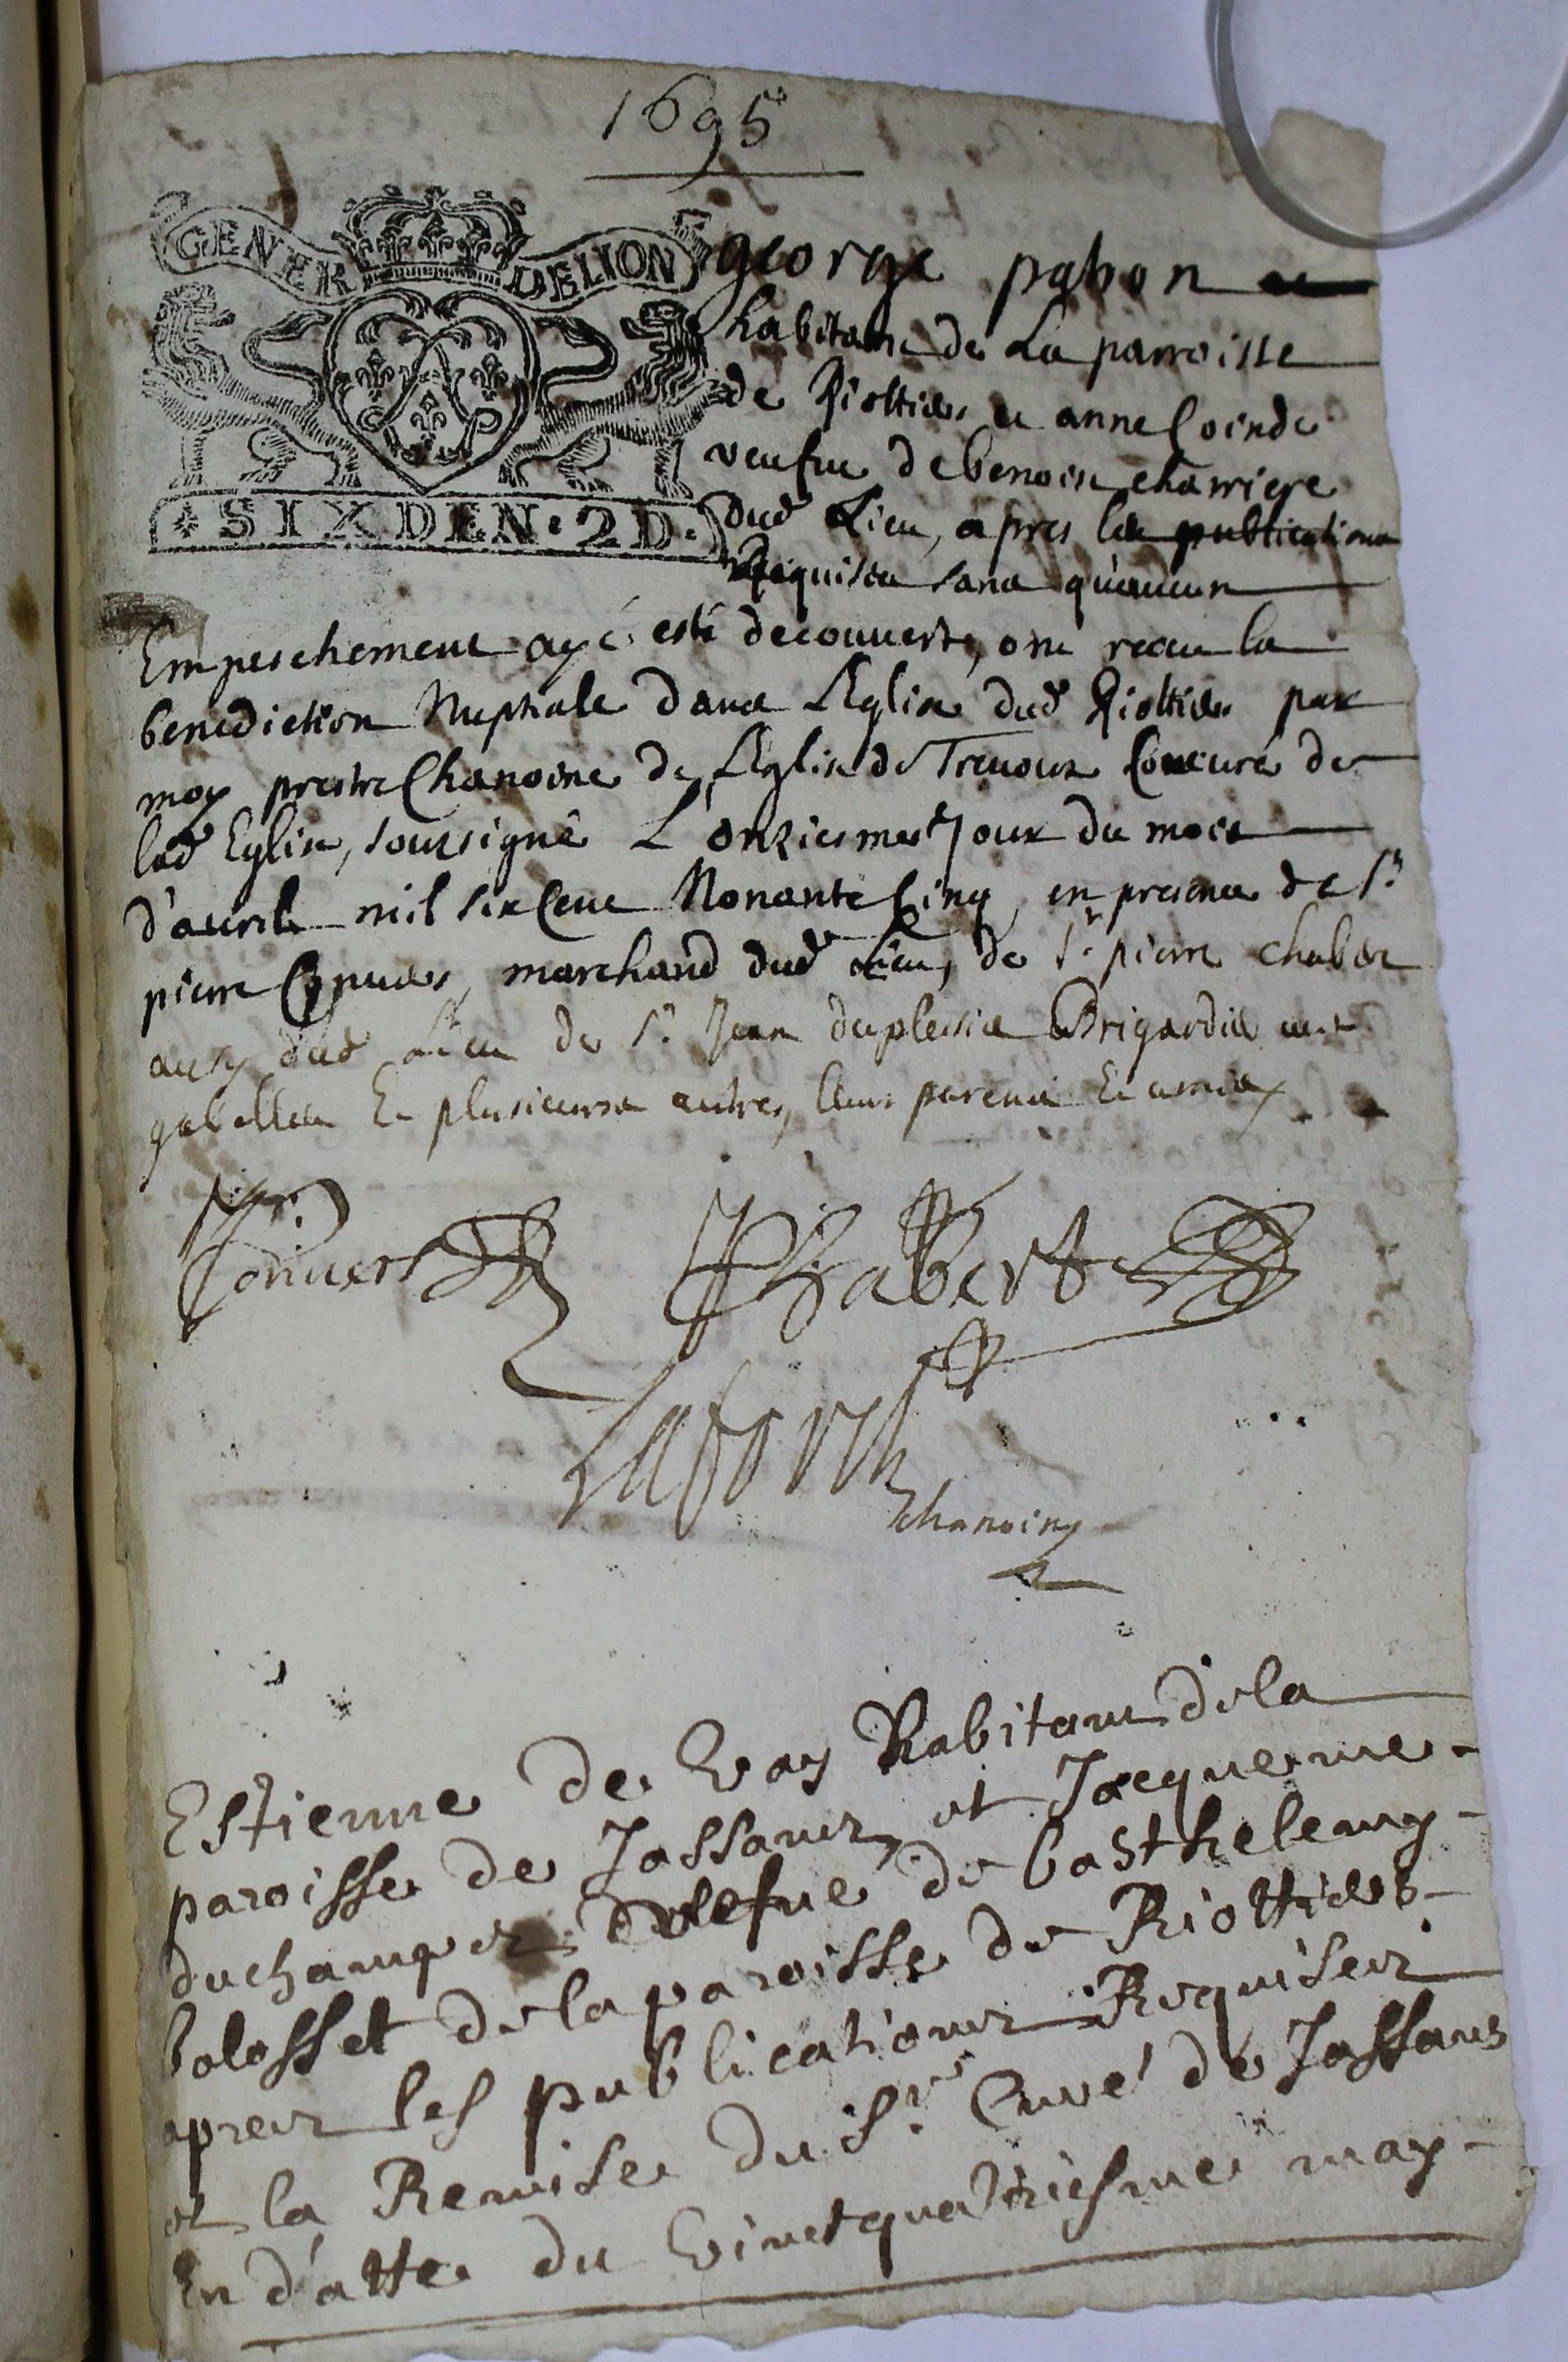 1695
GENER DE LION
SIX DEN. 2 D.
george pabon
habitant de La parroisse
de Riottier et anne Coinde
veufve de benoist charriere
dud Lieu, apres les publications
Requises sans qu'aucun
Empeschement aye esté decouvert, ont receu la
benediction Nuptiale dans L'Eglise dud Riottier par
moy prestre Chanoine de L'Eglise de Trevoux Concuré de
lad Eglise, soussigné L'onziesme Jour du mois
d'avril mil six Cent Nonante Cinq, en presence de Sr
pierre marchand dud Lieu, de Sr pierre chabert
aussy dud Lieu de Sr Jean duplessis Brigardie aux
gabelles Et plusieurs autres leurs parents Et amis
Convers Chabert
Chanoine
Estienne de habitant de la
paroisse de Jassans et Jacqueme
duchamps vefve de barthelemy
bolosset de la paroisse de Riottiers
apres les publications Requises
et la Remise du Sr Curé de Jassans
En datte du vintquatriesme may